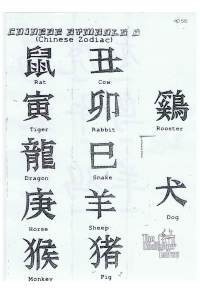 CHINESE SYMBOLS
(Chinese Zodiac)
鼠 丑
Rat Cow
寅 卯 鷄
Tiger Rabbit Rooster
龍 巳
Dragon Snake
庚 羊 犬
Horse Sheep Dog
猴 猪
Monkey Pig
The